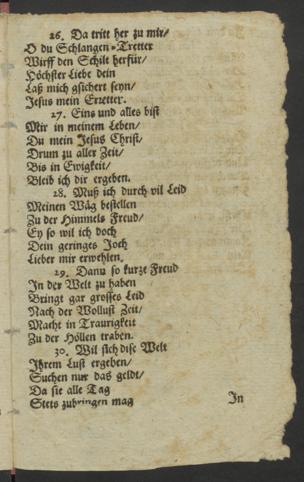 26. Da tritt her zu mir/
O du Schlangen-Tretter
Wirff den Schilt herfür/
Höchster Liebe dein
Laß mich gsichert seyn/
Jesus mein Erretter.
27. Eins und alles bist
Mir in meinem Leben/
Du mein Jesus Christ/
Drum zu aller Zeit/
Bis in Ewigkeit/
Bleib ich dir ergeben.
28. Muß ich durch vil Leid
Meinen Wäg bestellen
Zu der Himmels Freud/
Ey so wil ich doch
Dein geringes Joch
Lieber mir erwehlen.
29. Dann so kurze Freud
In der Welt zu haben
Bringt gar grosses Leid
Nach der Wollust Zeit/
Macht in Traurigkeit
Zu der Höllen traben.
30. Wil sich dise Welt
Ihrem Lust ergeben/
Suchen nur das geldt/
Da sie alle Tag
Stets zubringen mag
In